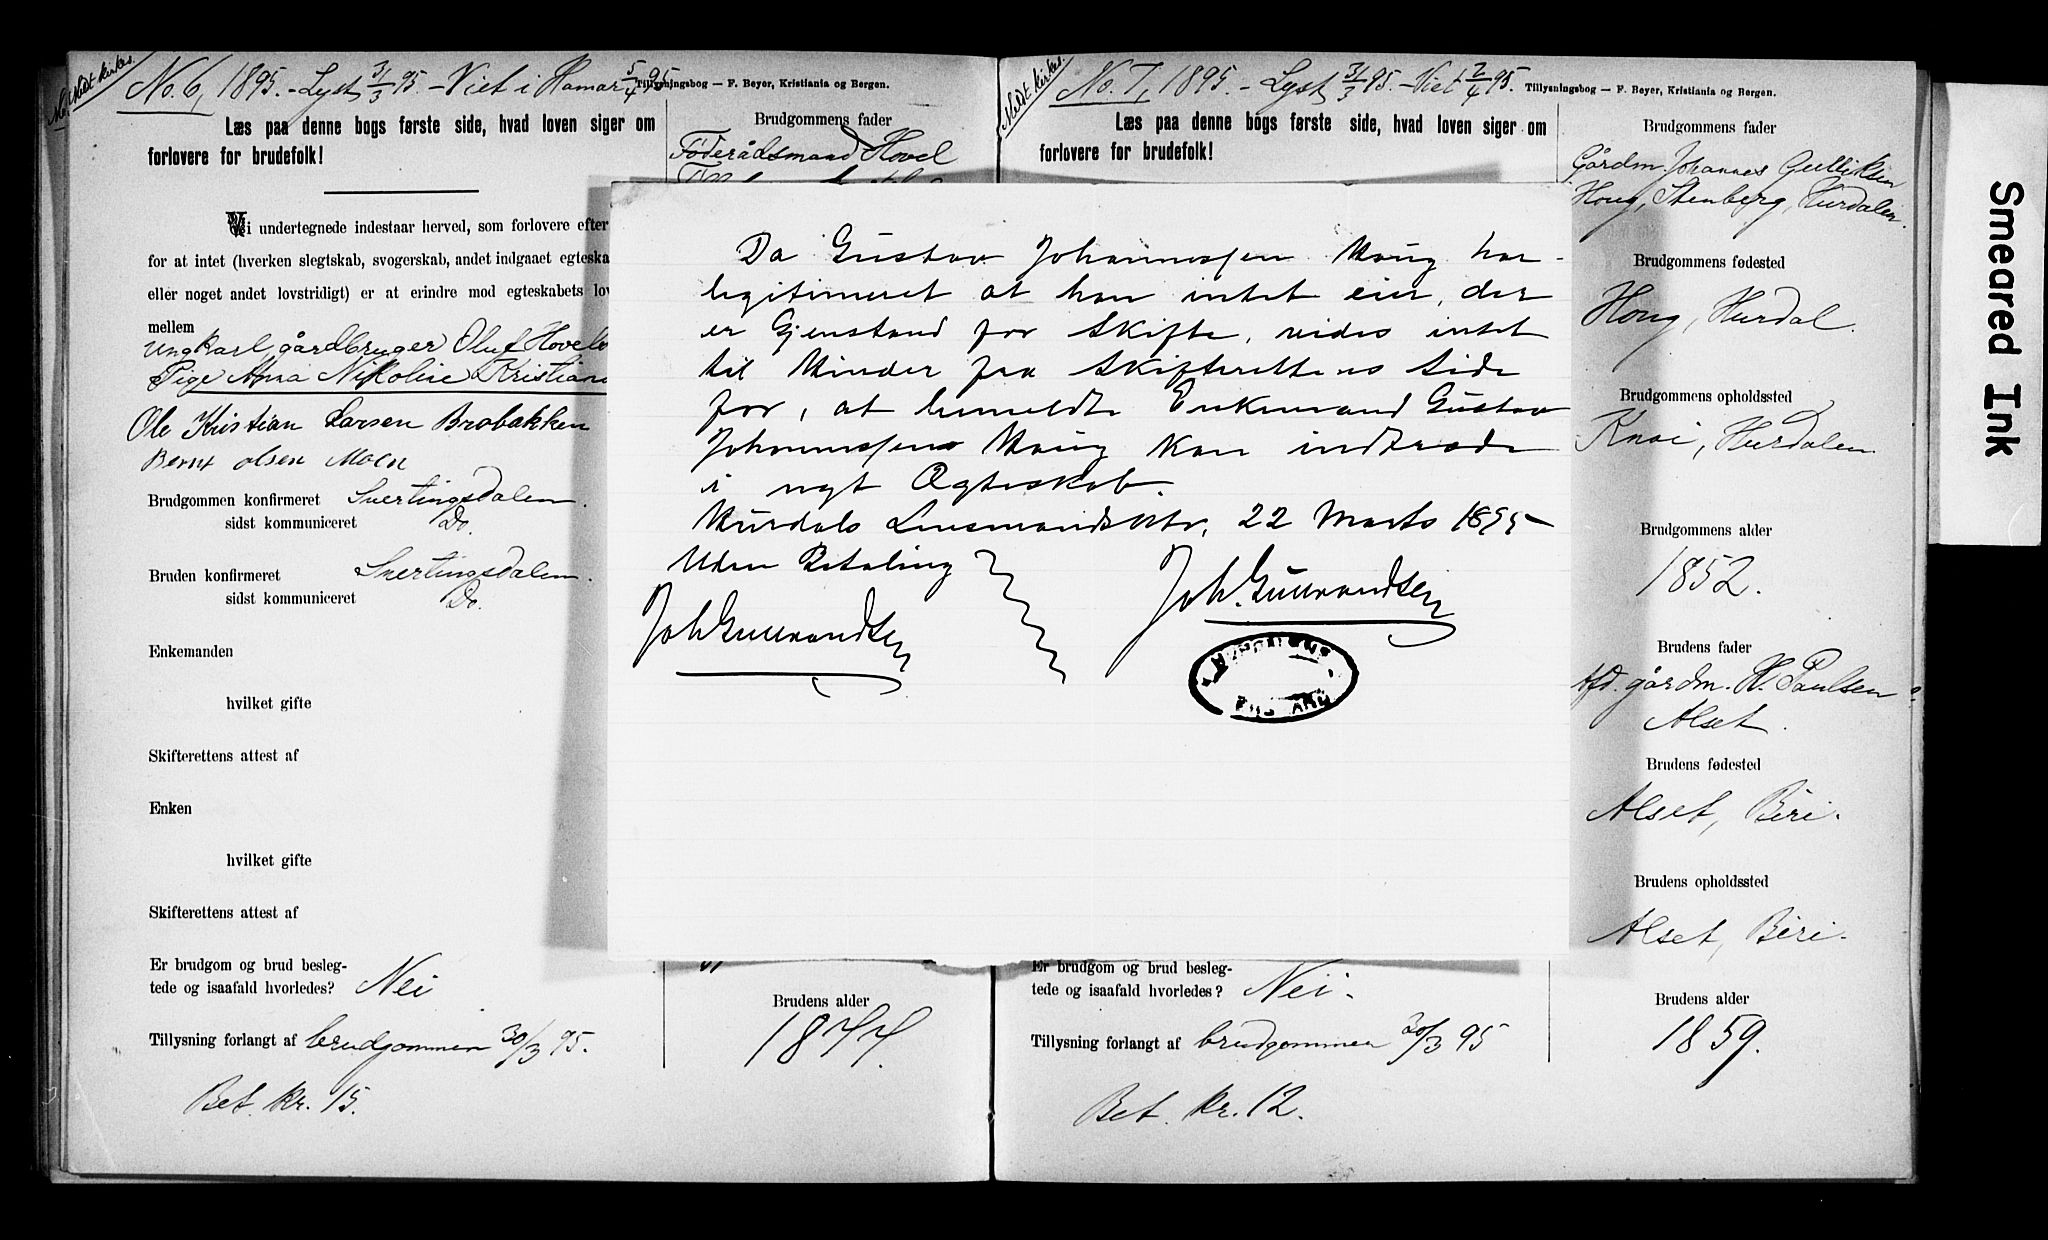 No. 6, 1895. - Lyst 31/3 95. - Viet i Hamar 5/4 95.
Tillysningsbog — F. Beyer, Kristiania og Bergen.
Læs paa denne bogs første side, hvad loven siger om
forlovere for brudefolk!
Brudgommens fader
Føderådsmand Hovel
Vi undertegnede indestaar herved, som forlovere efter
for at intet (hverken slegtskab, svogerskab, andet indgaaet egteska
eller noget andet lovstridigt) er at erindre mod egteskabets lov
mellem
Ungkarl, gårdbruger Oluf Hovels
Pige Anna Nikoline Kristians
Ole Kristian Larsen Brobakken
Bernt Olsen Moen
Brudgommen konfirmeret Snertingsdalen.
sidst kommuniceret Do.
Bruden konfirmeret Snertingsdalen.
sidst kommuniceret Do.
Enkemanden
hvilket gifte
Skifterettens attest af
Enken
hvilket gifte
Skifterettens attest af
Er brudgom og brud besleg-
tede og isaafald hvorledes? Nei
Tillysning forlangt af brudgommen 30/3 95.
Bet. kr. 15.
Brudens alder
1877.
Da Gustav Johannessen Houg har
legitimeret at han intet eier, der
er Gjenstand for Skifte, vides intet
til Hinder fra Skifterettens Side
for, at bemeldte Enkemand Gustav
Johannessen Houg kan indtræde
i nyt Ægteskab.
Hurdals Lensmandsktr, 22 Marts 1895
Uden Betaling
Joh. Gulbrandsen
Joh Gulbrandsen
Meldt kirkes.
No. 7, 1895. - Lyst 31/3 95. - Viet 2/4 95.
Tillysningsbog — F. Beyer, Kristiania og Bergen.
Læs paa denne bogs første side, hvad loven siger om
forlovere for brudefolk!
Brudgommens fader
Gårdm. Johannes Gulliksen
Houg, Stenberg, Hurdalen.
Brudgommens fødested
Houg, Hurdal.
Brudgommens opholdssted
Knai, Hurdalen
Brudgommens alder
1852.
Brudens fader
Afd. gårdm. H. Paulsen
Alset.
Brudens fødested
Alset, Biri.
Brudens opholdssted
Alset, Biri.
Er brudgom og brud besleg-
tede og isaafald hvorledes? Nei.
Tillysning forlangt af brudgommen 30/3 95
Bet. kr. 12.
Brudens alder
1859.
Smeared Ink